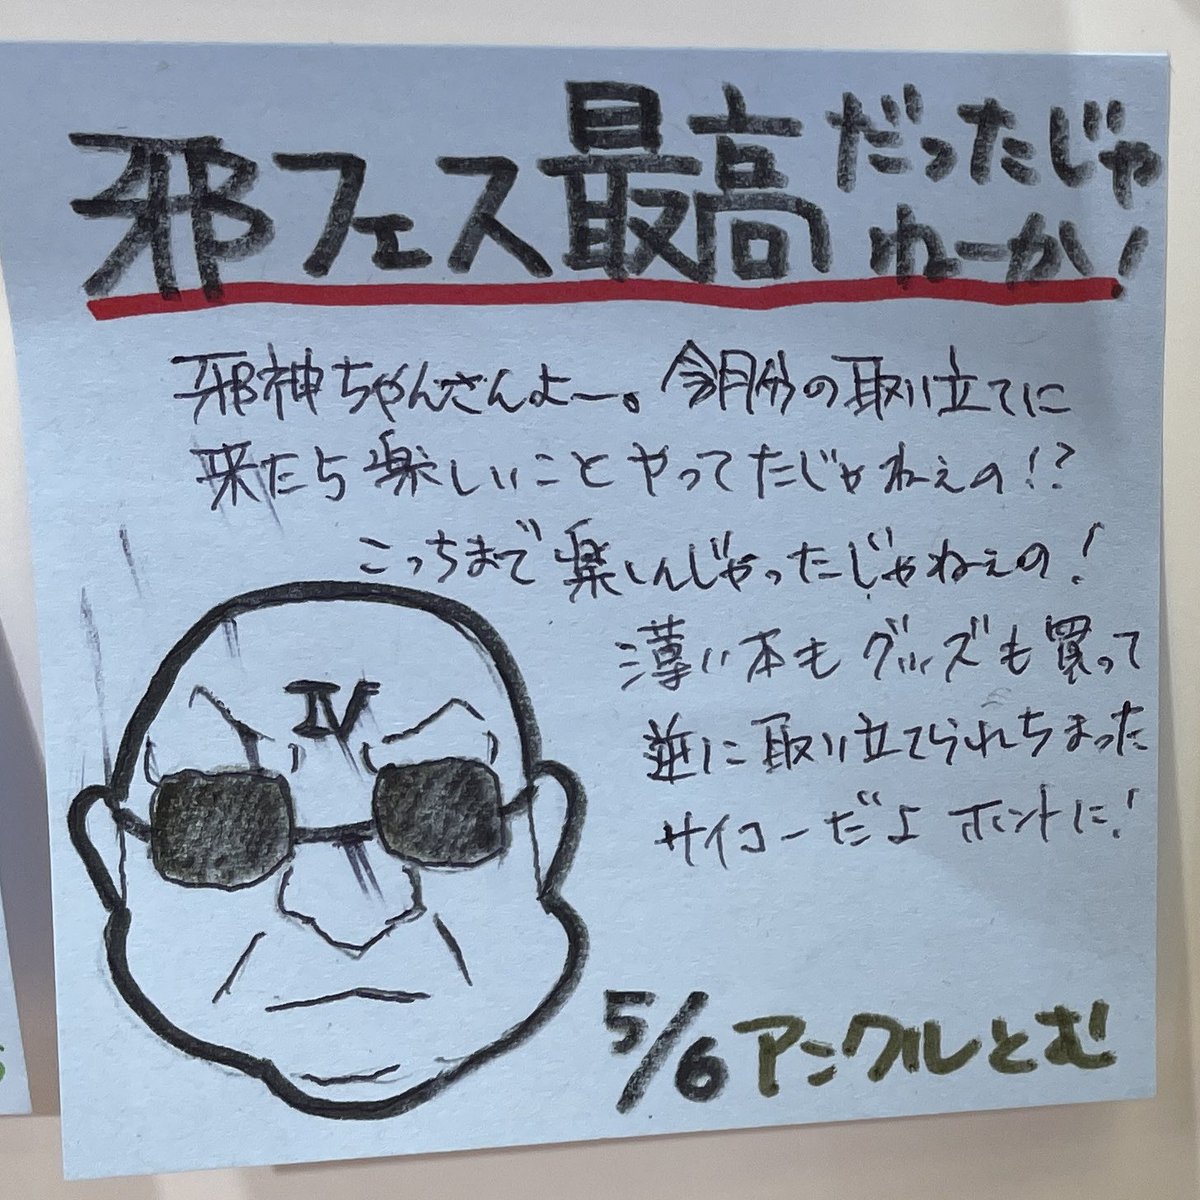 邪フェス最高だったじゃ
ねーか!
邪神ちゃんさんよー。今月分の取り立てに
来たら楽しいことやってたじゃねぇの!?
こっちまで楽しんじゃったじゃねぇの!
薄い本もグッズも買って
逆に取り立てられちまった
サイコーだよホントに!
IV
5/6 アンクルとむ